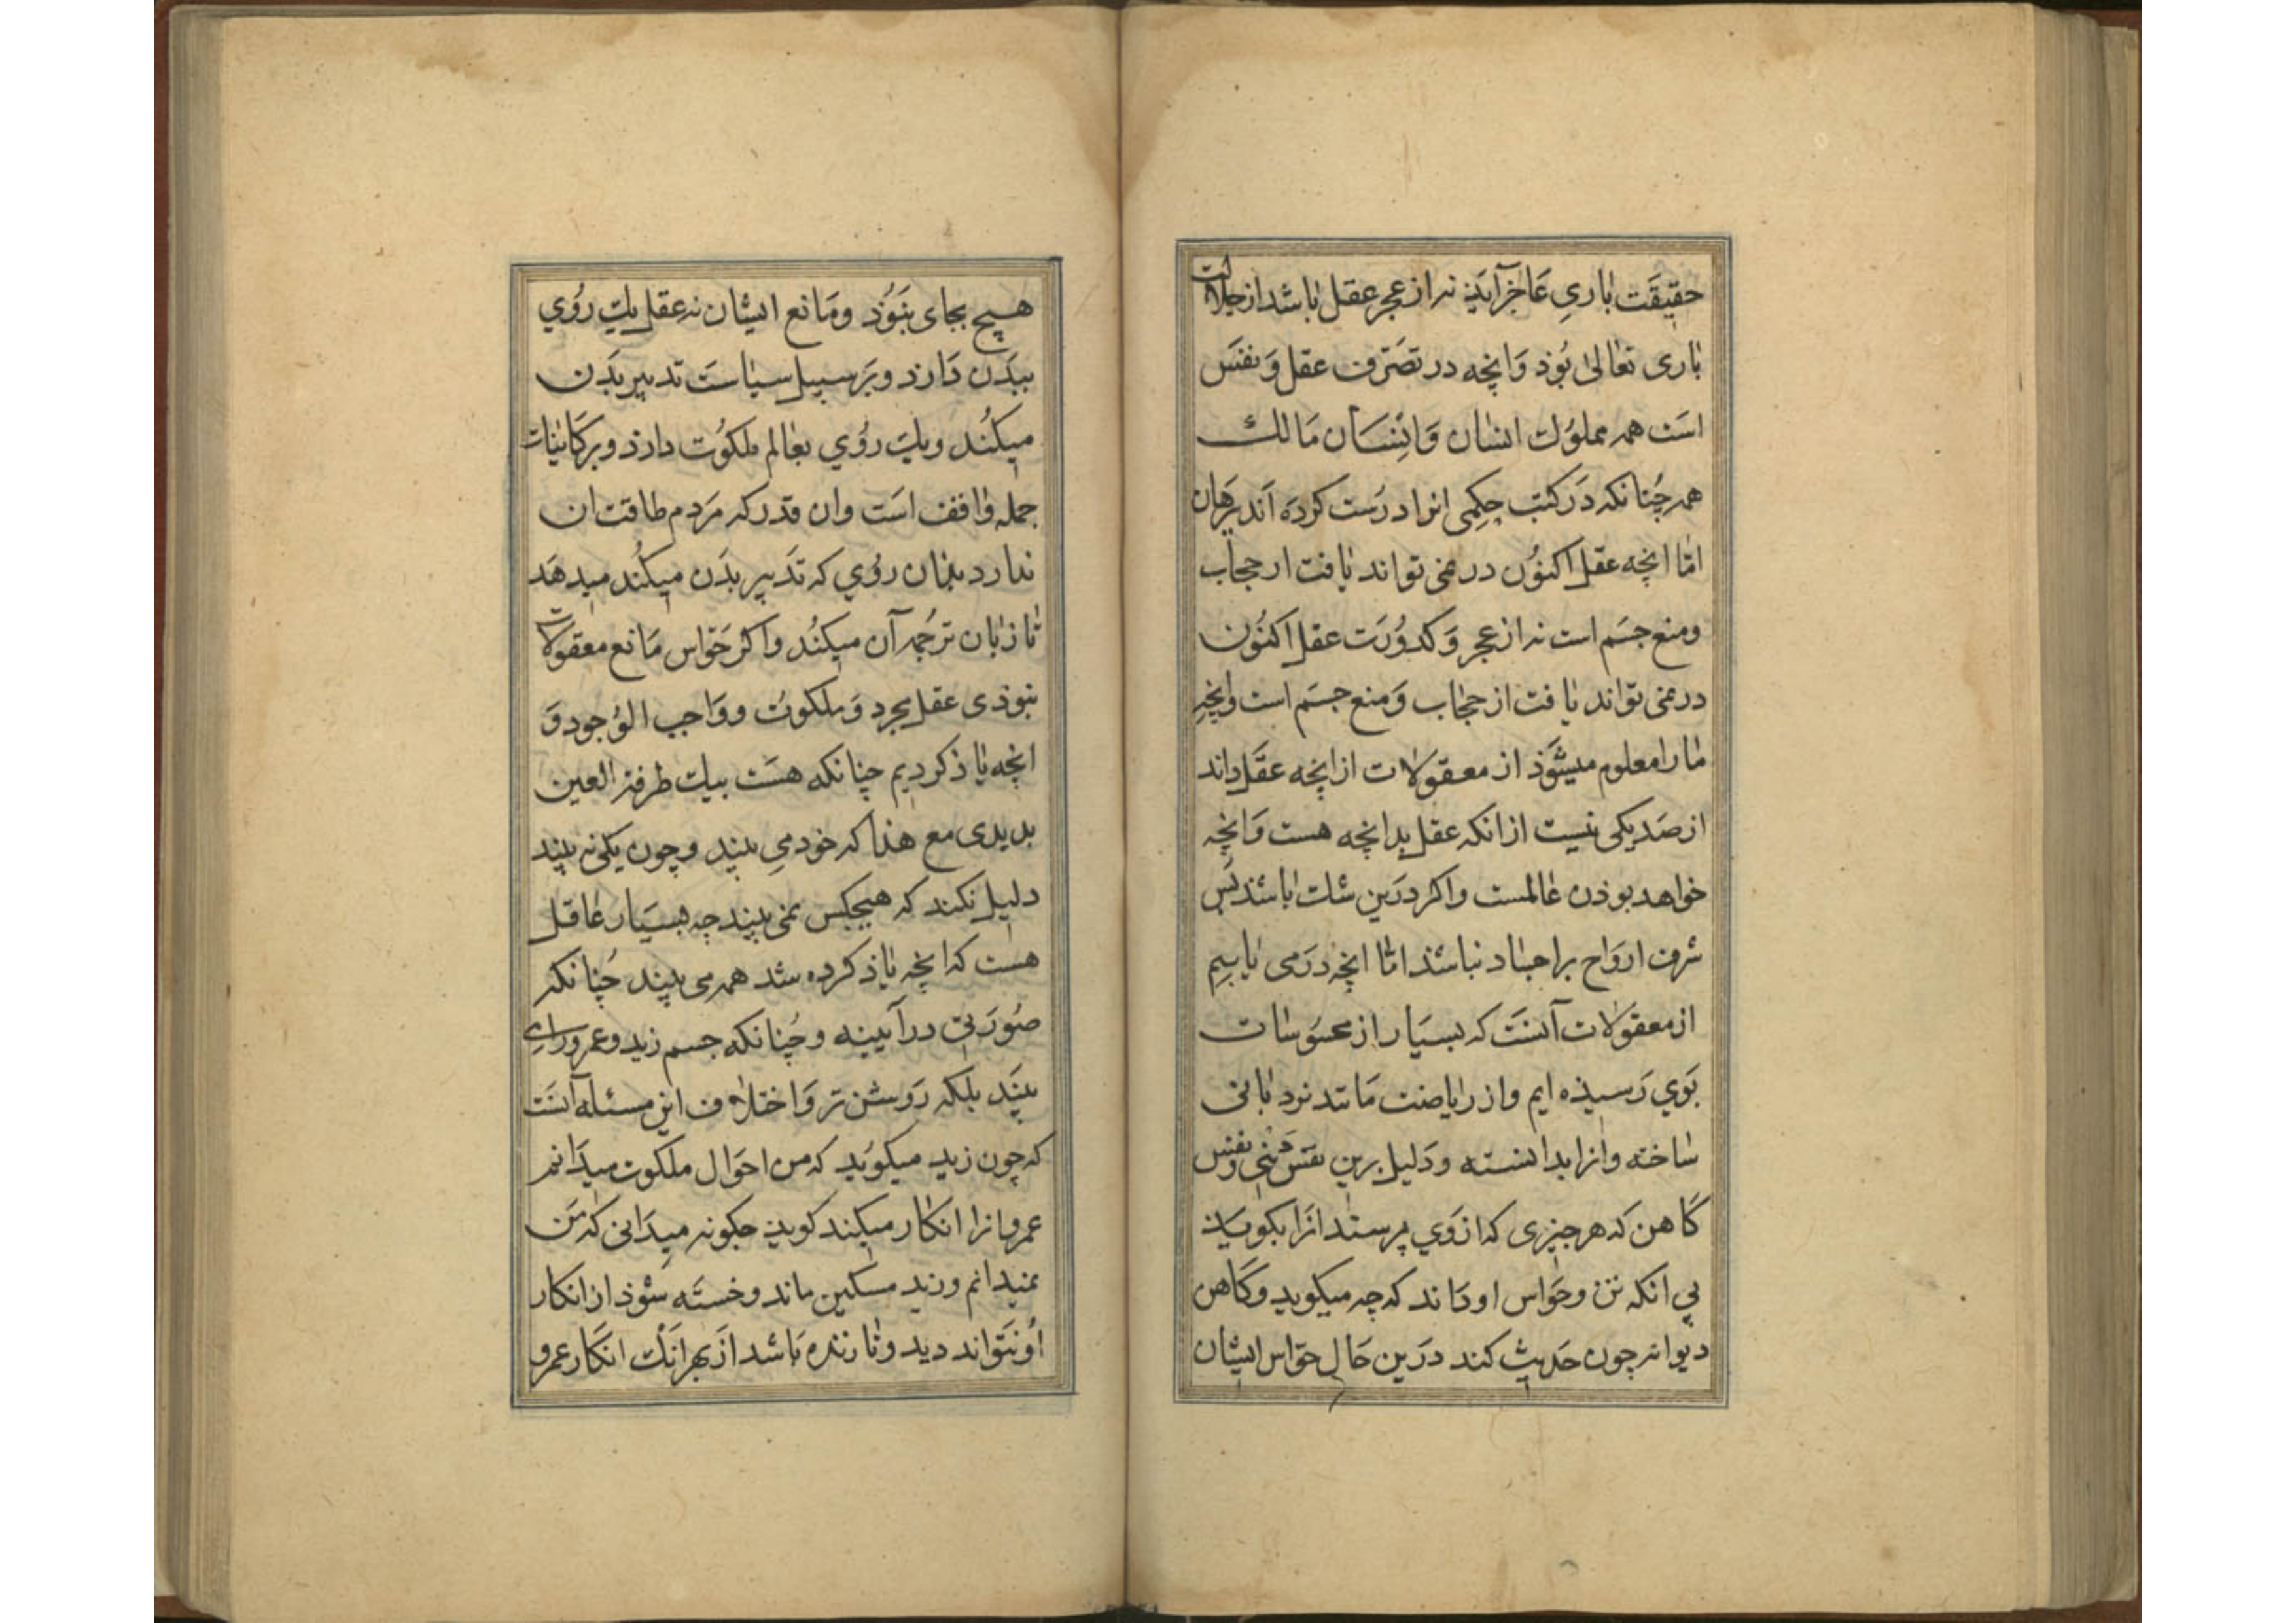 حقیقَت باریِ عَاجز آیَذ نه از عجز عقل باشد از جلالت
باری تعالیٰ بُوَذ وَانچه در تصَرّف عقل وَ نفسَ
اسَت همه مملوُك انسٰان وَانِسَان مَالك
همه چُنانكه دَر كتب حِكمی انرا درُست كردَه اَند ببرَهان
امّا انچه عقل اكنوُن در نمی تواند یافت از حجاب
ومنع جسَم است نه از عجز وَكدوُرَت عقل اكنوُن
در نمی تواند یافت از حجاب وَمنع جسَم است وانچه
مارا معلوم میشَوَذ از معقولات از انچه عقَل داند
از صَد یكی نیست از انكه عقل بدانچه هست وَانچه
خواهد بوذن عالمست واكر دَرین شك باشذ پَس
شرف ارواح بر اجسٰاد نباشذ امّا انچه دَر می یابیم
از معقولات آنستَ كه بسیَار از محسُوسٰات
بَوي رَسیذه ایم واز ریاضت مَانند نردبانی
ساخته وانرا بدانسته ودَلیل برین نفسَ نبَی ونفس
كَاهن كه هر چیزی كه از وَي پرسند انَرا بكویَذ
بی انكه تن وحَواس او دَاند كه چه میكوید وكَاهن
دیوانه چون حَدیث كند دَرین حَال حوَاس ایشان
هیچ بجای نبَوُذ ومَانع ایشان نه عقل یك رُوي
ببدَن دَارذ وبَر سبیل سیاسَت تدبیر بدَن
میكُند ویك رُوي بعٰالم ملكُوت دارذ وبر كَاینات
جمله واقف اسَت وان قدر كه مَردم طاقت ان
ندارد بذان روُي كه تَدبیر بدَن میكُند میدهَد
تا زبان ترجُمه آن میكنُد واكر حَواس مَانع معقولات
نبوذی عقل مجرد وَملكوُت ووَاجب الوُجود وَ
انچه یاذ كردیم چنانكه هسَت بیك طرفة العین
بدیدی مع هذا كه خود می بیند وچون یكی نه بیند
دلیل نكند كه هیچكس نمی بیند چه بسیَار عاقل
هست كه انچه یاذ كرده شد همه می بیند چُنانكه
صُورَتی در آیینه وچُنانكه جسم زید وعمرو رایِ
بینَد بلكه رَوشن تر وَاختلاف این مسئله آنستَ
كه چون زید میكوُید كه من احَوال ملكوت میدَانم
عمرو انرا انكار میكند كویذ چكونه میدَانی كه مَن
نمیدانم وزید مسكین ماند وخستَه شوذ از انكار
اوُ نتَواند دید وتا زنده بَاشد از بَهر انَك انكَار عمرو